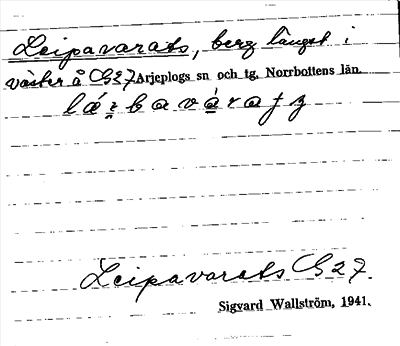 Leipavarats, berg längst i
väster å G27 Arjeplogs sn och tg, Norrbottens län.
Leipavarats G27.
Sigvard Wallström, 1941.